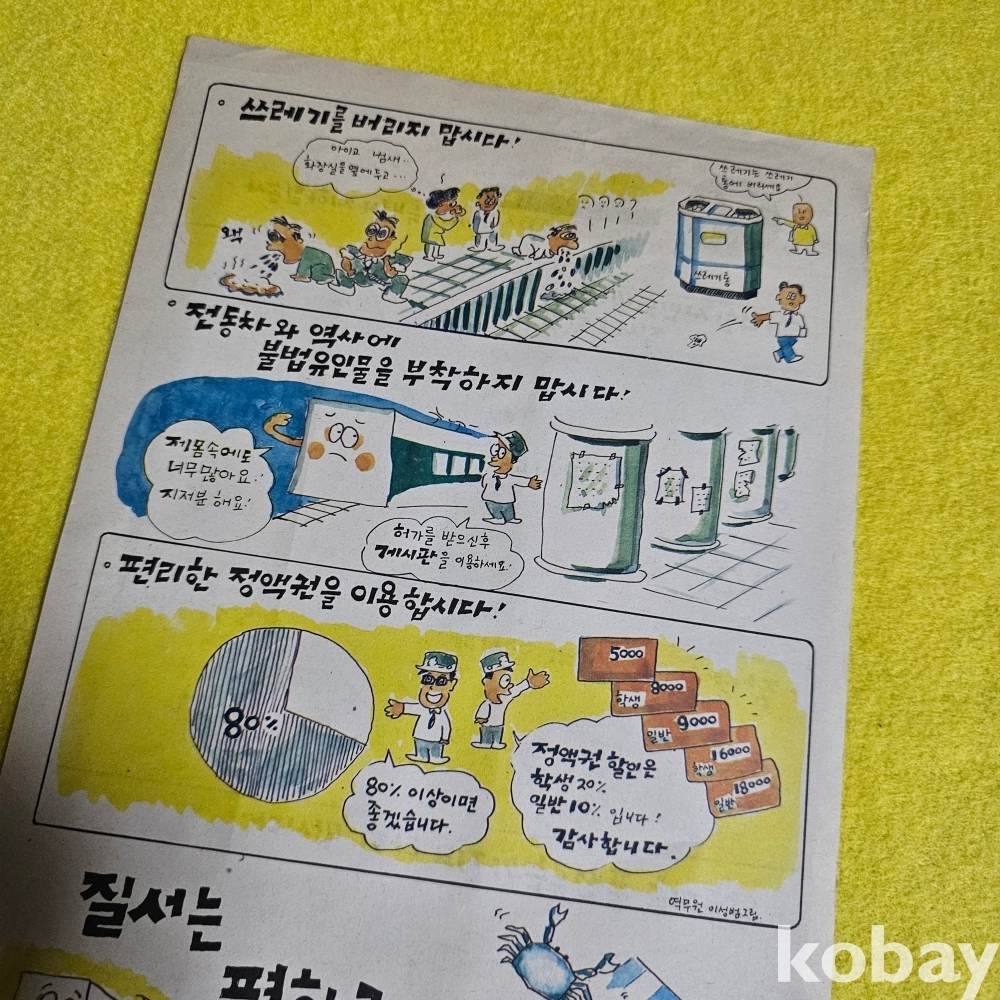 쓰레기를 버리지 맙시다!
아이고 냄새..
화장실을 옆에두고...
쓰레기는 쓰레기
통에 버리세요
왝
쓰레기통
전동차와 역사에
불법유인물을 부착하지 맙시다!
제몸속에도
너무많아요!
지저분해요!
허가를 받으신후
게시판을 이용하세요!
편리한 정액권을 이용합시다!
80%
80% 이상이면
좋겠습니다.
5000
학생 8000
일반 9000
학생 16000
일반 18000
정액권 할인은
학생 20%
일반 10% 입니다!
감사합니다.
역무원 이성범그림.
질서는
kobay